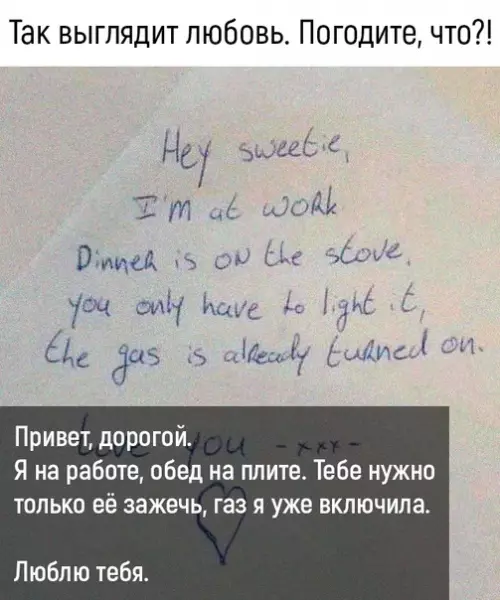 Так выглядит любовь. Погодите, что?!
Hey sweetie,
I'm at work
Dinner is on the stove,
you only have to light it,
the gas is already turned on.
Love you -xxx-
Привет, дорогой.
Я на работе, обед на плите. Тебе нужно
только её зажечь, газ я уже включила.
Люблю тебя.